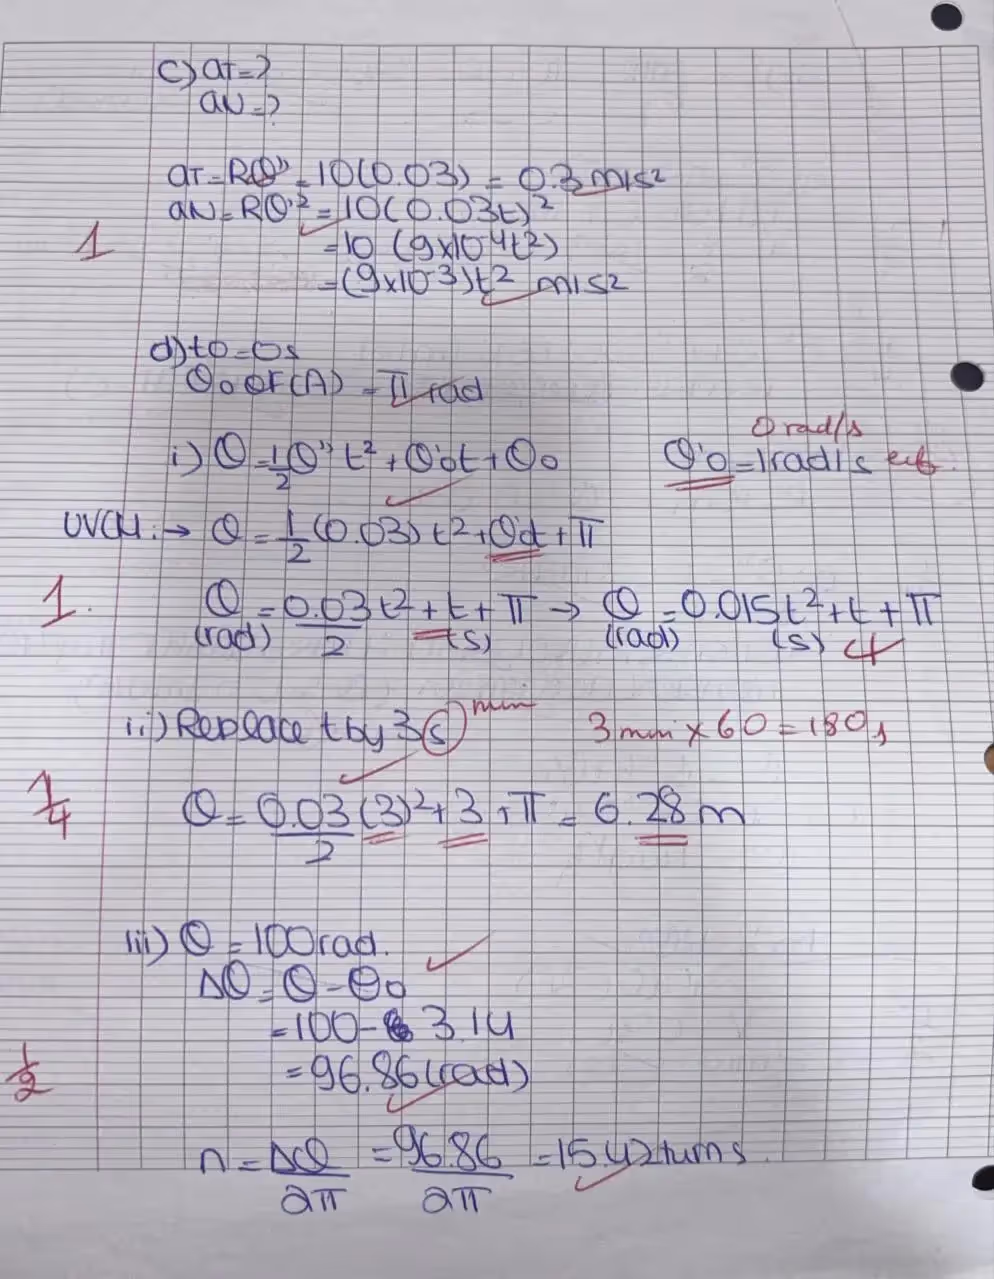 c) aT=?
aN=?
aT=Rθ''=10(0.03) = 0.3 m/s2
aN=Rθ'2=10(0.03t)2
1
=10 (9x10-4t2)
=(9x10-3)t2 m/s2
d) t0=0s
θ0 of (A) = π rad
0 rad/s
i) θ=1/2 θ'' t2 + θ'0t + θ0 θ'0=1rad/s
UVCM: → θ = 1/2 (0.03) t2 + θ't + π
1. θ = 0.03t2/2 + t + π → θ = 0.015t2 + t + π
(rad) (s) (rad) (s)
ii) Replace t by 3s min 3 min x 60 = 180s
1/4 θ = 0.03/2 (3)2 + 3 + π = 6.28 m
iii) θ = 100rad.
Δθ = θ - θ0
= 100 - 3.14
1/2 = 96.86 (rad)
n = Δθ/2π = 96.86/2π = 15.42 turns